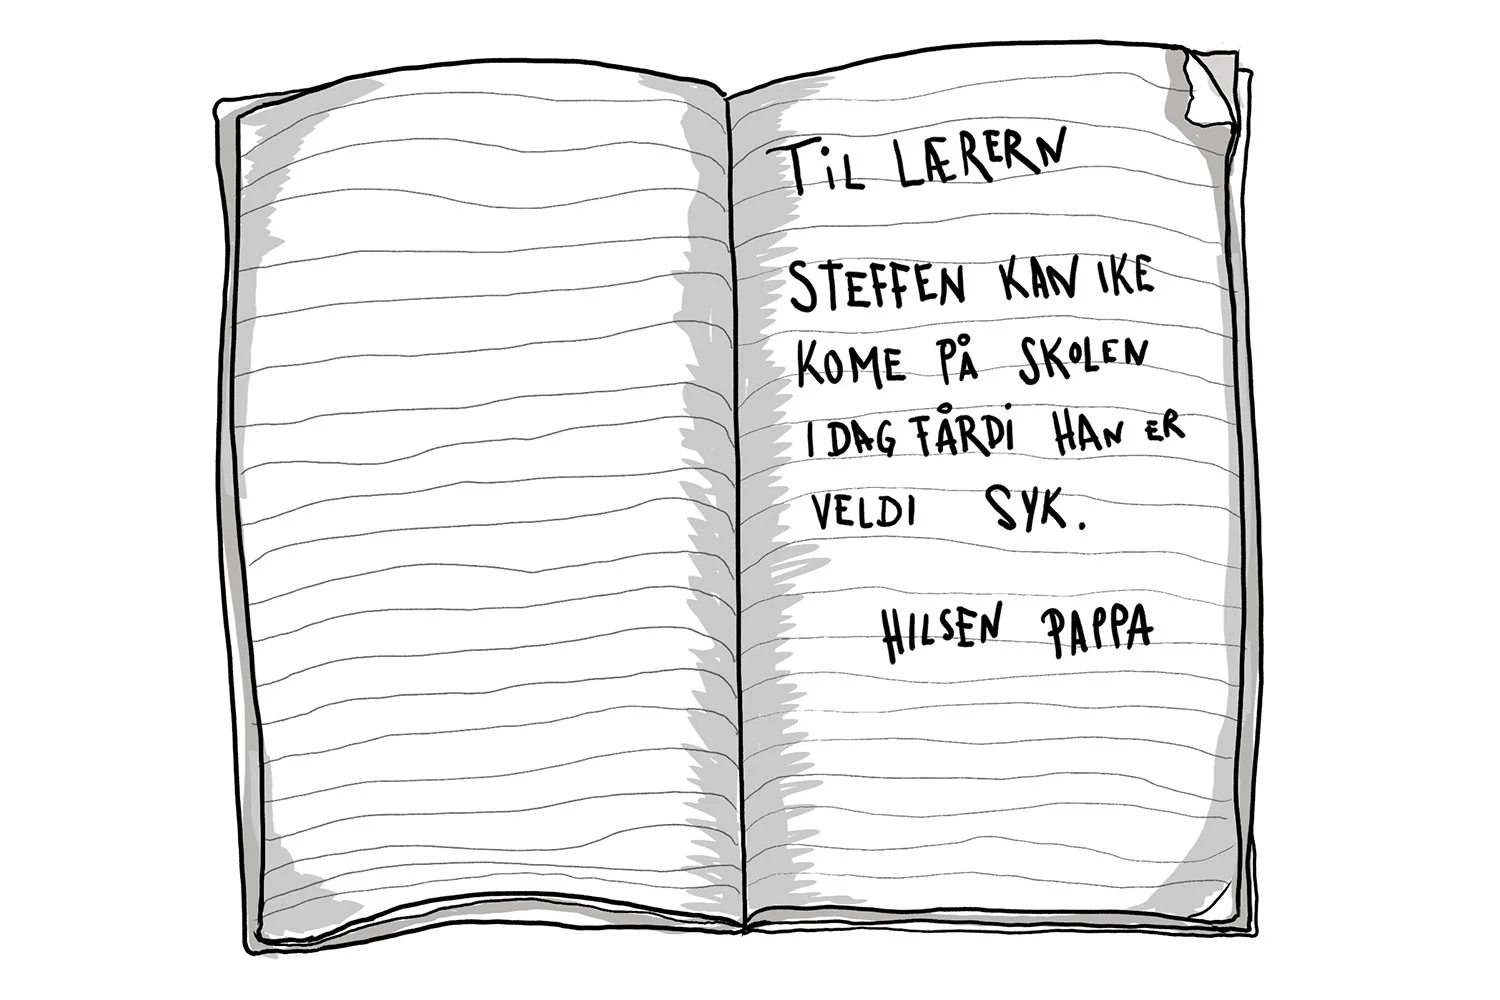 TiL LÆRERN
STEFFEN KAN IKE
KOME PÅ SKOLEN
I DAG FÅRDi HAN ER
VELDI SYK.
HILSEN PAPPA